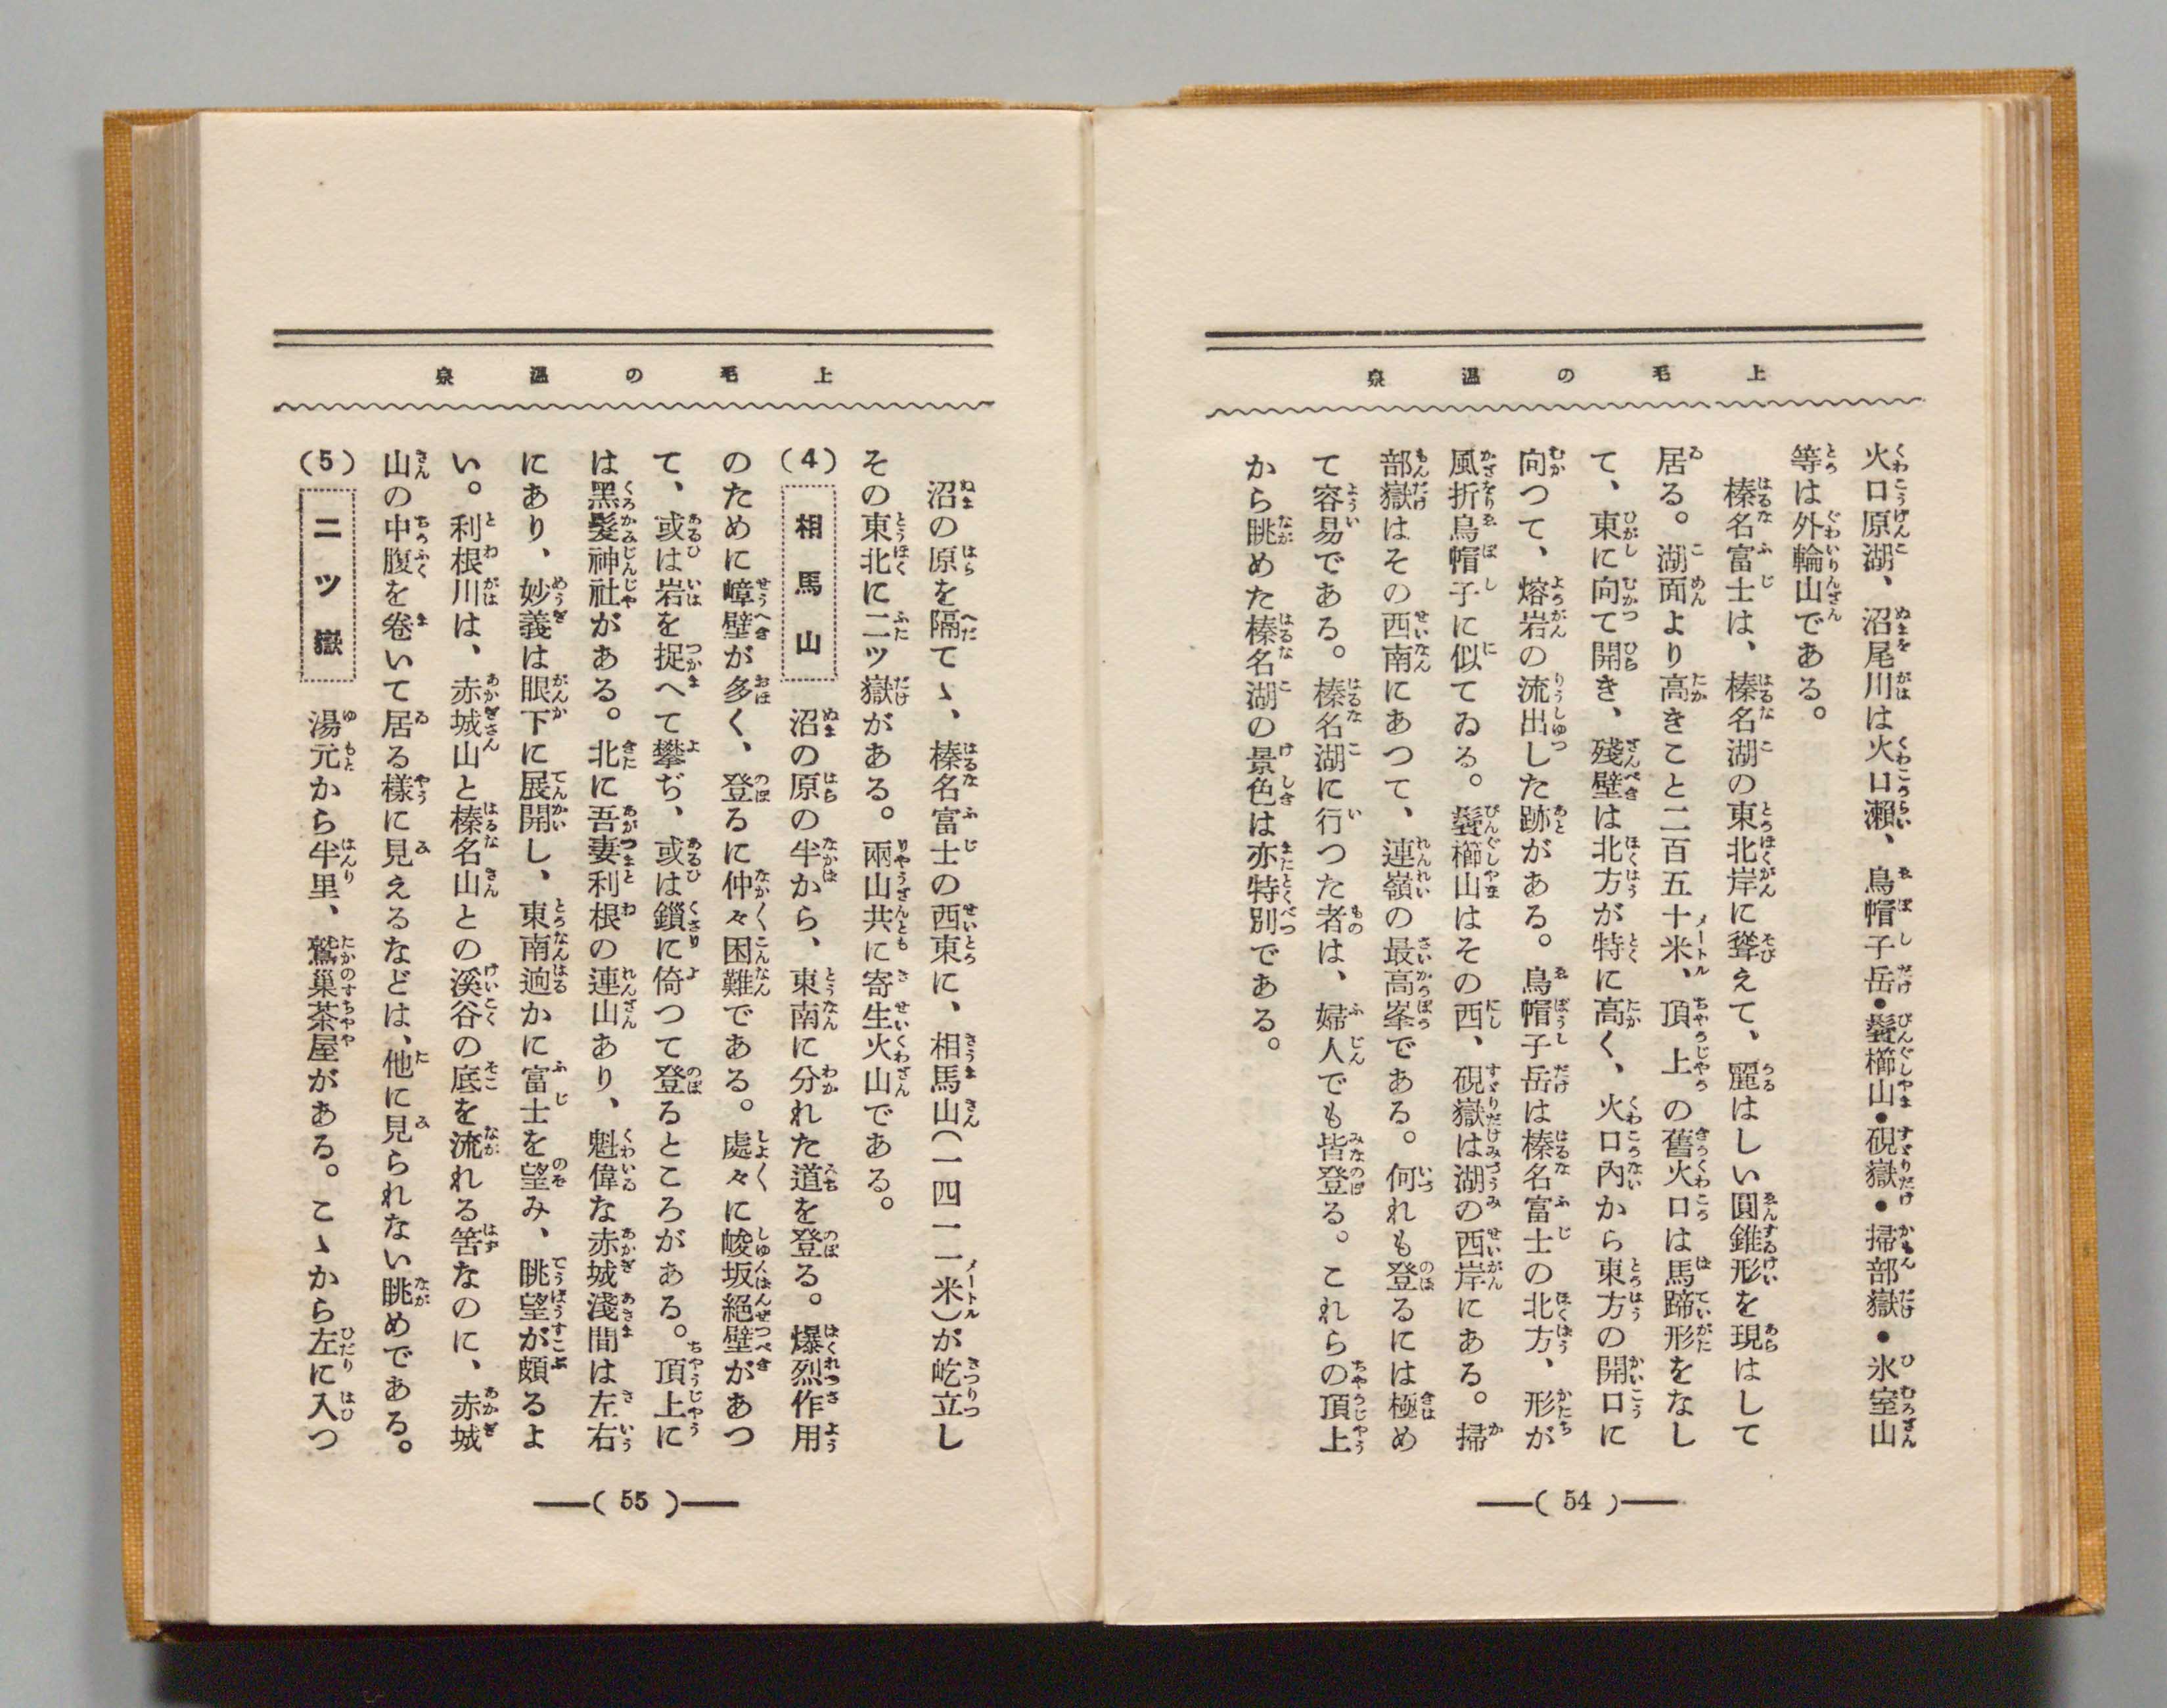 上毛の温泉
火口原湖、沼尾川は火口瀬、烏帽子岳・鬢櫛山・硯嶽・掃部嶽・氷室山
等は外輪山である。
榛名富士は、榛名湖の東北岸に聳えて、麗はしい圓錐形を現はして
居る。湖面より高きこと二百五十米、頂上の舊火口は馬蹄形をなし
て、東に向て開き、殘壁は北方が特に高く、火口內から東方の開口に
向つて、熔岩の流出した跡がある。烏帽子岳は榛名富士の北方、形が
風折烏帽子に似てゐる。鬢櫛山はその西、硯嶽は湖の西岸にある。掃
部嶽はその西南にあつて、連嶺の最高峯である。何れも登るには極め
て容易である。榛名湖に行つた者は、婦人でも皆登る。これらの頂上
から眺めた榛名湖の景色は亦特別である。
—( 54 )—
上毛の温泉
沼の原を隔てゝ、榛名富士の西東に、相馬山(一四一一米)が屹立し
その東北に二ッ嶽がある。兩山共に寄生火山である。
(4) 相馬山 沼の原の半から、東南に分れた道を登る。爆烈作用
のために嶂壁が多く、登るに仲々困難である。處々に峻坂絕壁があつ
て、或は岩を捉へて攀ぢ、或は鎖に倚つて登るところがある。頂上に
は黑髮神社がある。北に吾妻利根の連山あり、魁偉な赤城淺間は左右
にあり、妙義は眼下に展開し、東南逈かに富士を望み、眺望が頗るよ
い。利根川は、赤城山と榛名山との溪谷の底を流れる筈なのに、赤城
山の中腹を卷いて居る樣に見えるなどは、他に見られない眺めである。
(5) 二ッ嶽 湯元から半里、鷲巢茶屋がある。こゝから左に入つ
—( 55 )—